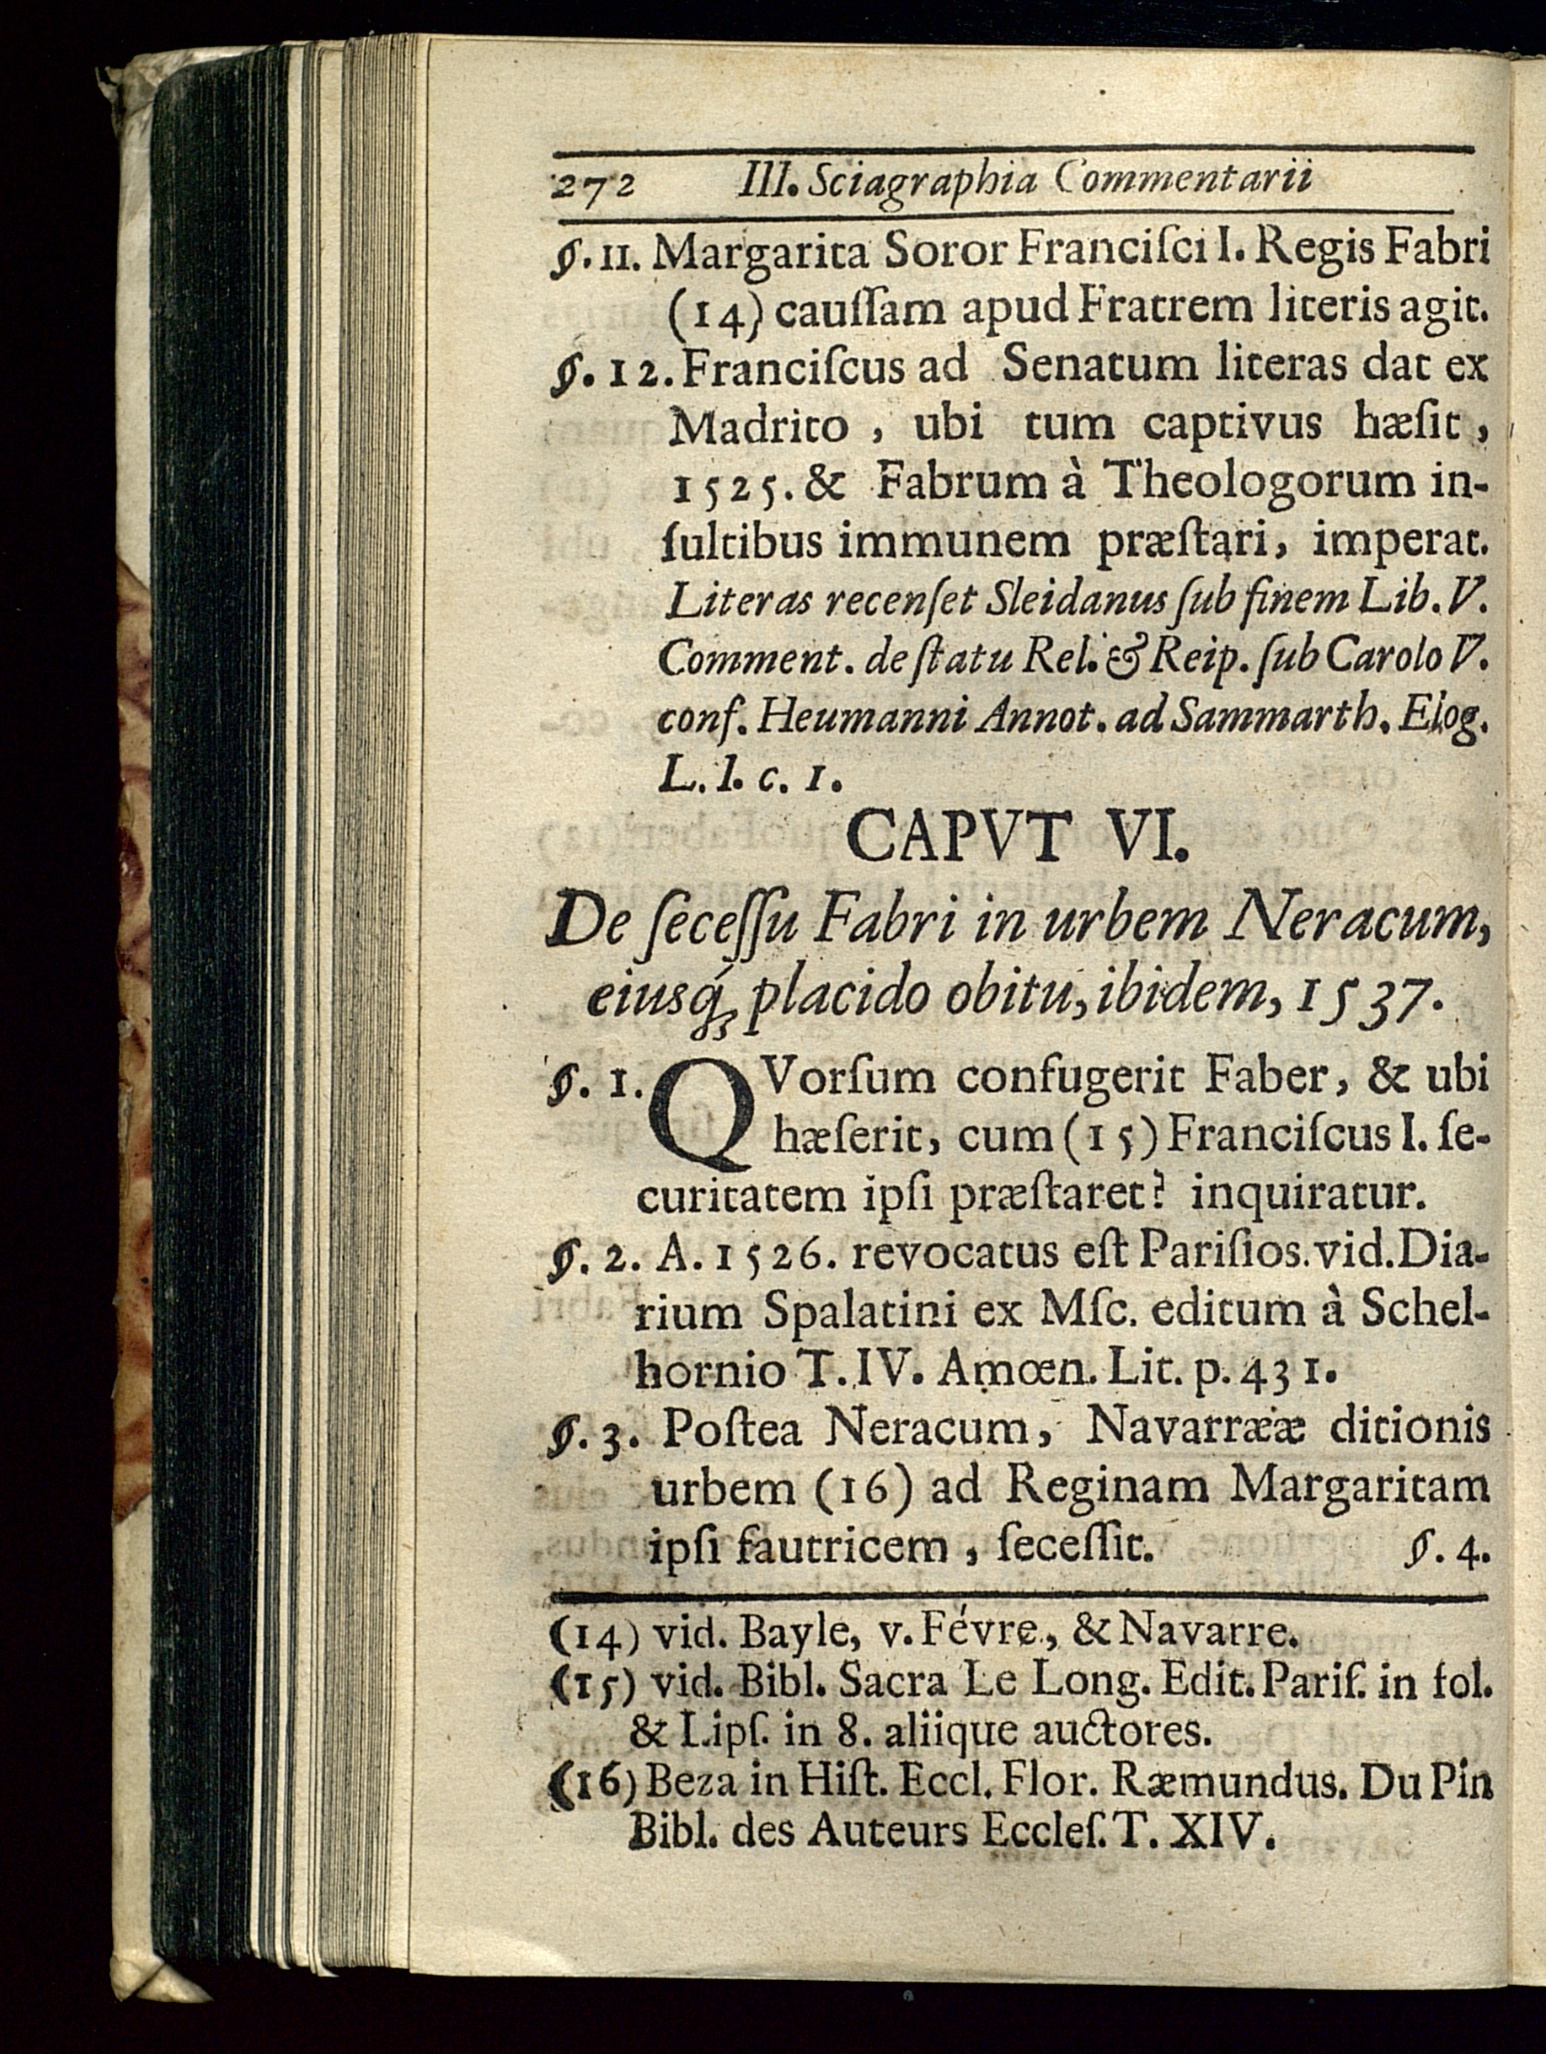 272 III. Sciagraphia Commentarii
§. 11. Margarita Soror Franciſci I. Regis Fabri
(14) cauſſam apud Fratrem literis agit.
§. 12. Franciſcus ad Senatum literas dat ex
Madrito , ubi tum captivus hæſit ,
1525. & Fabrum à Theologorum in-
ſultibus immunem præſtari, imperat.
Literas recenſet Sleidanus ſub finem Lib. V.
Comment. de ſtatu Rel. & Reip. ſub Carolo V.
conf. Heumanni Annot. ad Sammarth. Elog.
L. l. c. 1.
CAPVT VI.
De ſeceſſu Fabri in urbem Neracum,
eiusq́ꝫ placido obitu, ibidem, 1537.
§. 1. QVorſum confugerit Faber, & ubi
hæſerit, cum (15) Franciſcus I. ſe-
curitatem ipſi præſtaret? inquiratur.
§. 2. A. 1526. revocatus eſt Pariſios. vid. Dia-
rium Spalatini ex Mſc. editum à Schel-
hornio T. IV. Amœn. Lit. p. 431.
§. 3. Poſtea Neracum, Navarrææ ditionis
urbem (16) ad Reginam Margaritam
ipſi fautricem , ſeceſſit. §. 4.
(14) vid. Bayle, v. Févre, & Navarre.
(15) vid. Bibl. Sacra Le Long. Edit. Pariſ. in fol.
& Lipſ. in 8. aliique auctores.
(16) Beza in Hiſt. Eccl. Flor. Ræmundus. Du Pin
Bibl. des Auteurs Eccleſ. T. XIV.